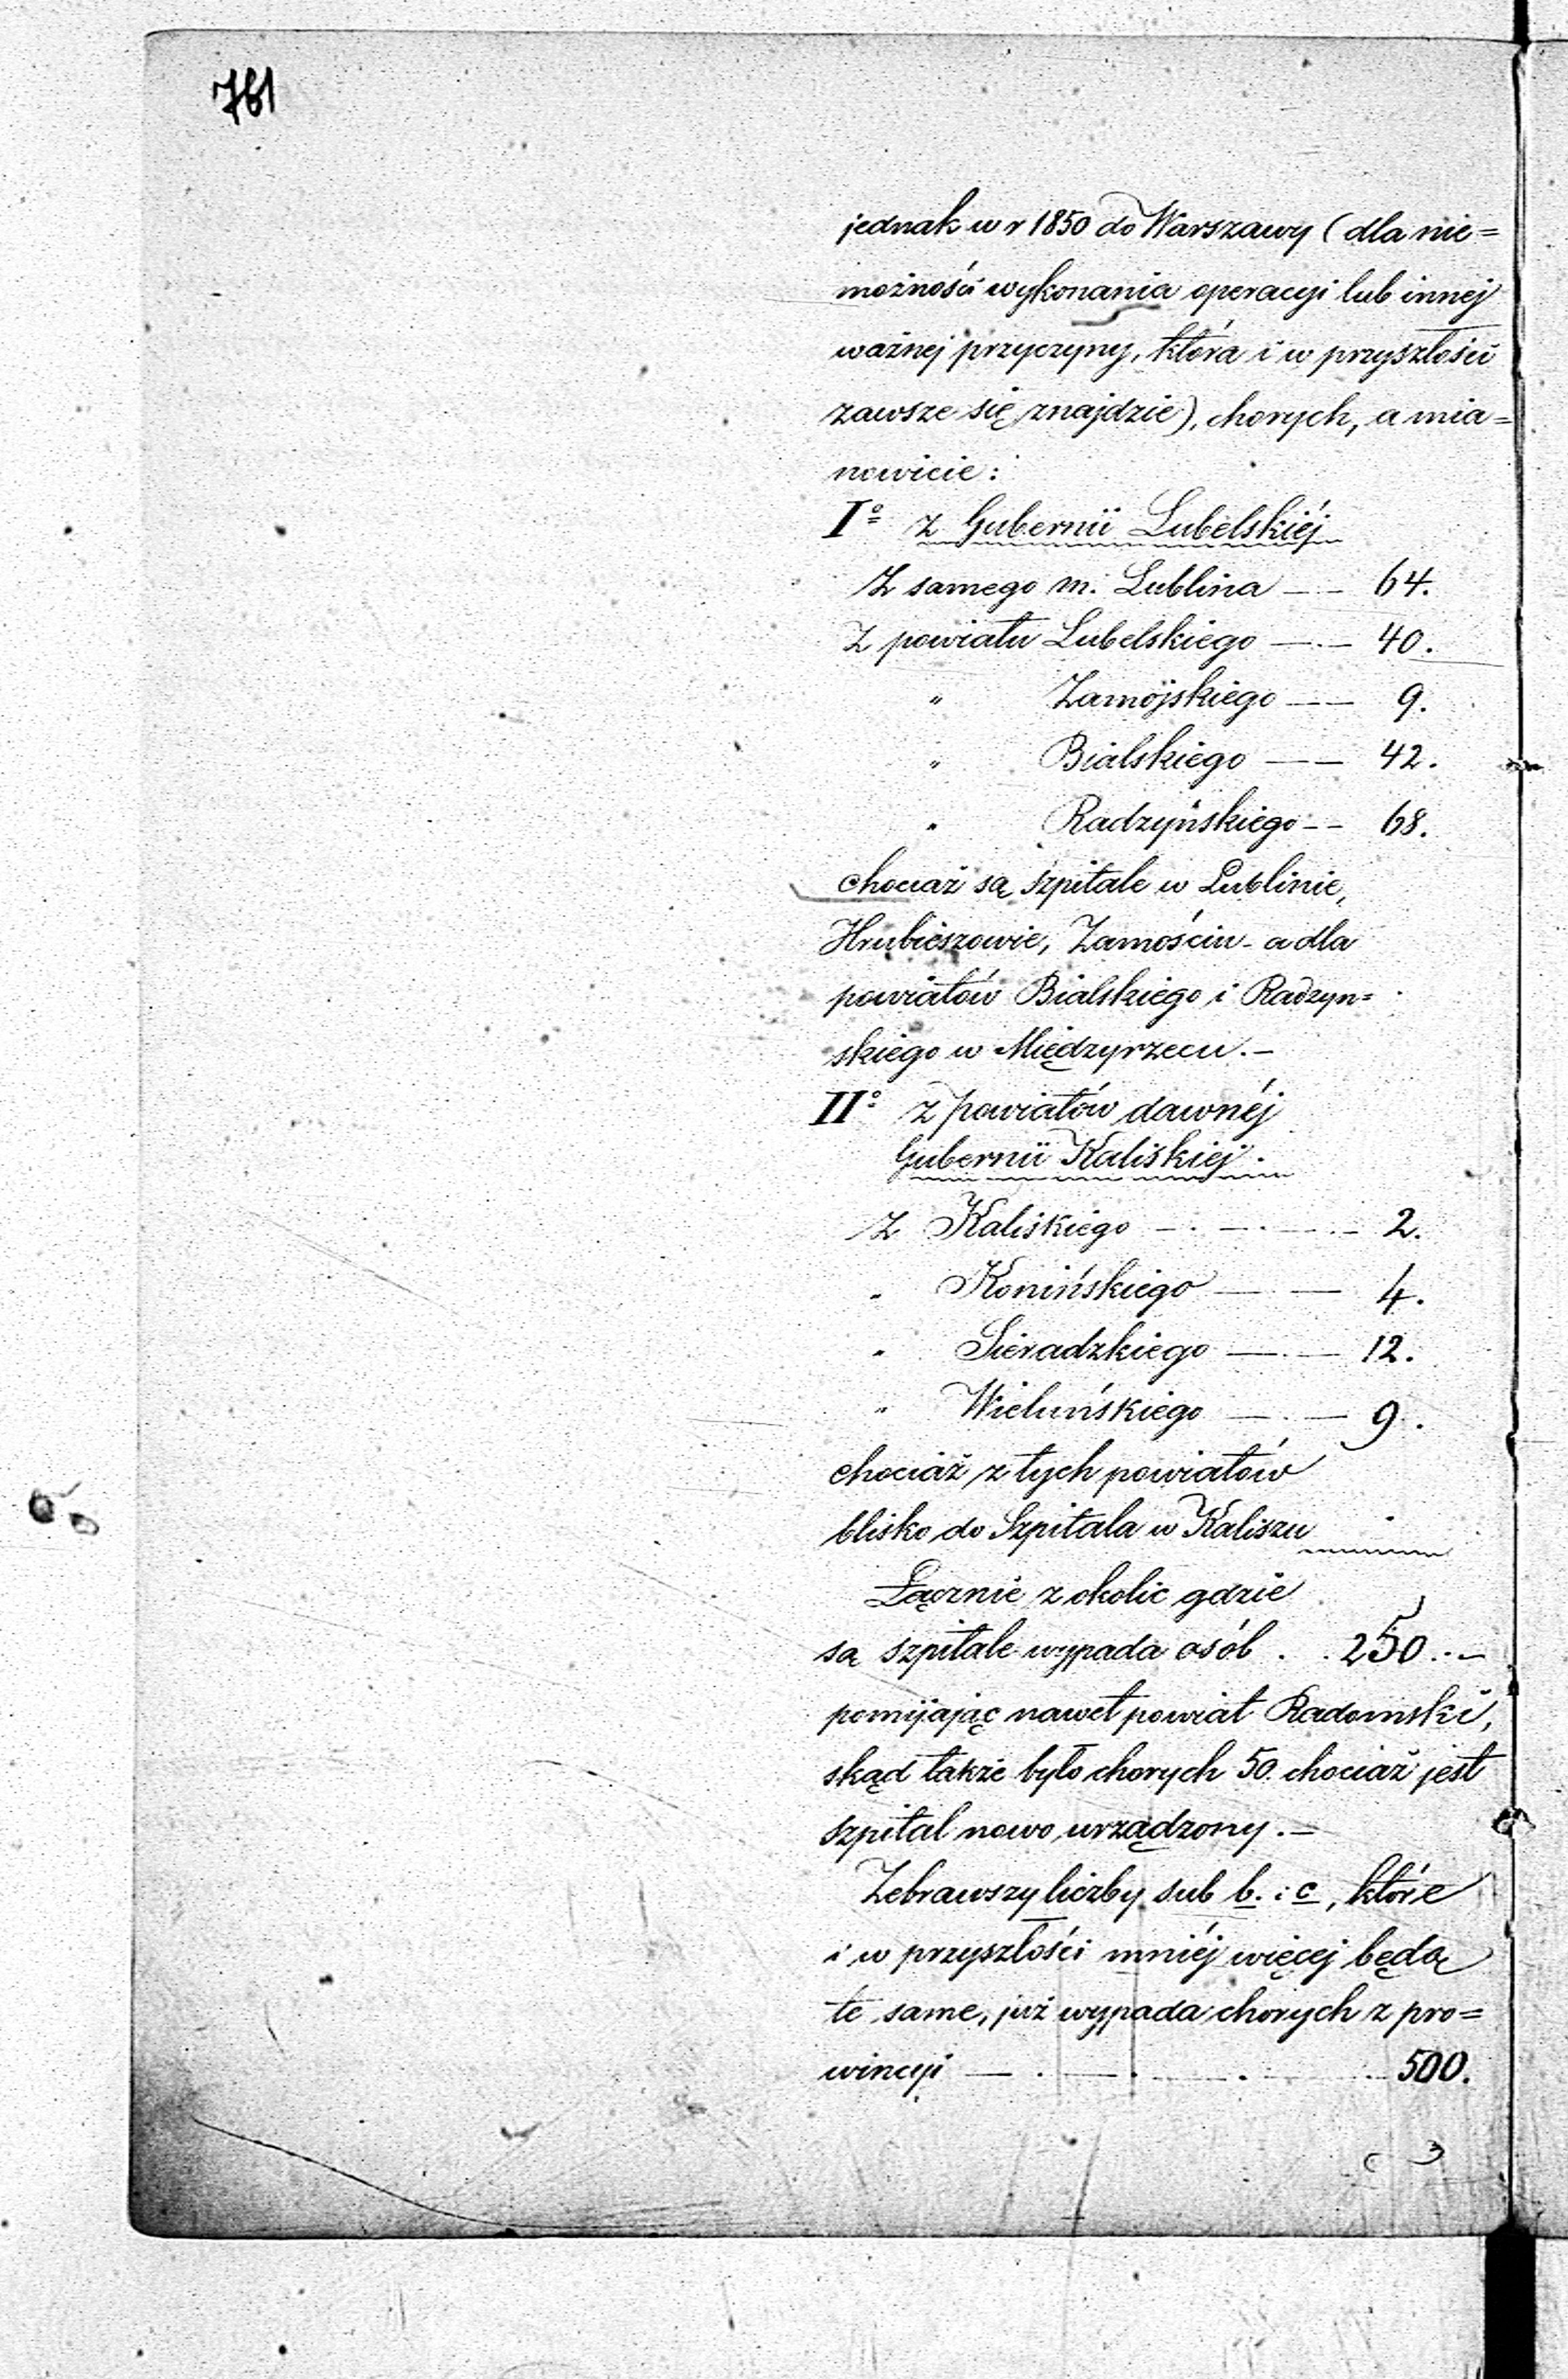 761
jednak w r 1850 do Warszawy (dla nie=
możności wykonania operacyi lub innej
ważnej przyczyny, która i w przyszłości
zawsze się znajdzie), chorych, a mia=
nowicie:
I° z Gubernii Lubelskiéj
Z samego m. Lublina — — 64.
Z powiatu Lubelskiego — . — 40.
" Zamojskiego — — 9.
" Bialskiego — — 42.
" Radzyńskiego — — 68.
chociaż są szpitale w Lublinie,
Hrubieszowie, Zamościu - a dla
powiatów Bialskiego i Radzyn=
skiego w Międzyrzecu. —
II° z powiatów dawnéj
Gubernii Kaliskiej.
Z Kaliskiego — . — . — . — 2.
" Konińskiego — — 4.
" Sieradzkiego — . — 12.
" Wieluńskiego — . — 9.
chociaż z tych powiatów
blisko do Szpitala w Kaliszu
Łącznie z okolic gdzie
są szpitale wypada osób . . 250. . —
pomijając nawet powiat Radomski,
skąd także było chorych 50. chociaż jest
szpital nowo urządzony. —
Zebrawszy liczby sub b. i c, które
i w przyszłości mniéj więcej będą
te same, już wypada chorych z pro=
wincyi — . — . — . — 500.